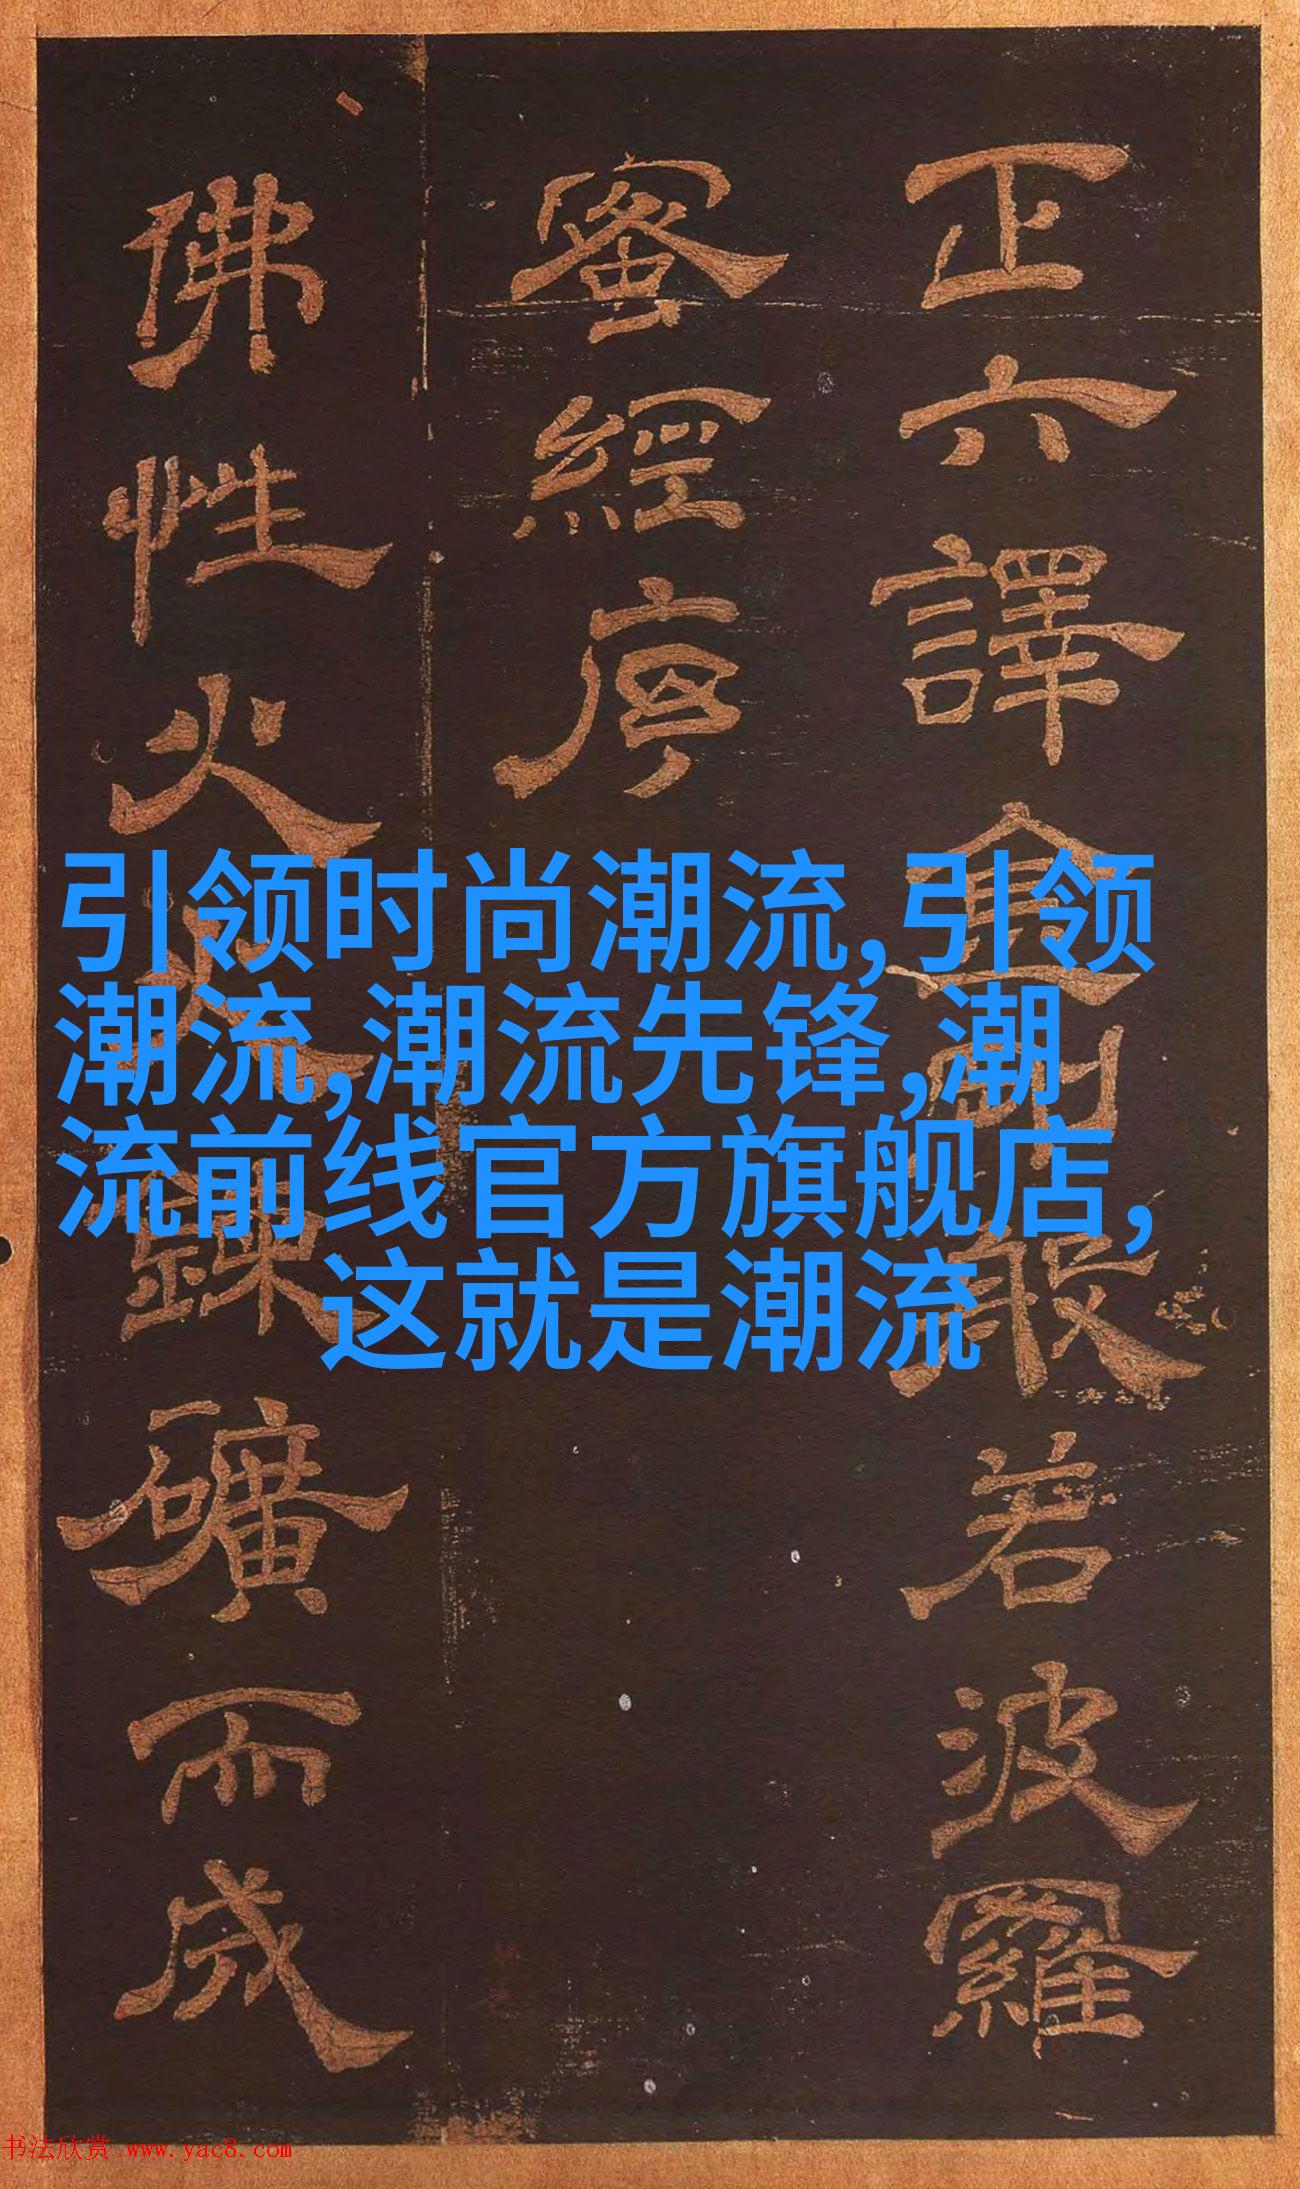 正六譯金剛般若波羅
蜜經序
佛性火
礦而成
引领时尚潮流,引领
潮流,潮流先锋,潮
流前线官方旗舰店,
这就是潮流
书法欣赏 www.yac8.com